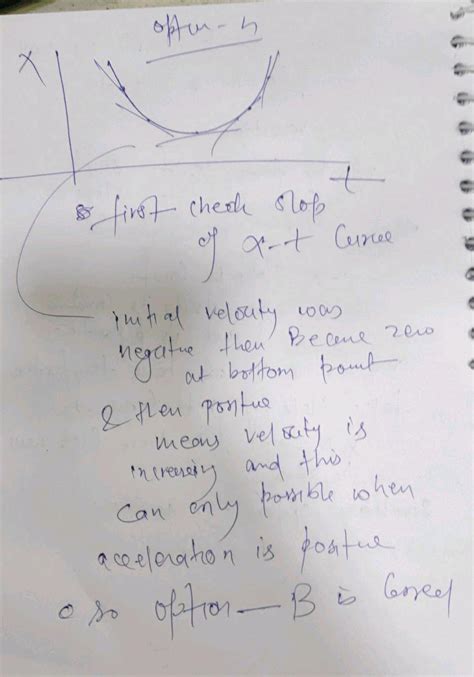 option - 
X
t
first check slop
of x-t curve
initial velouty was
negative then Became zero
at bottom point
& then positve
means velouty is
increasing and this
can only possible when
acceleration is positve
so option - B is